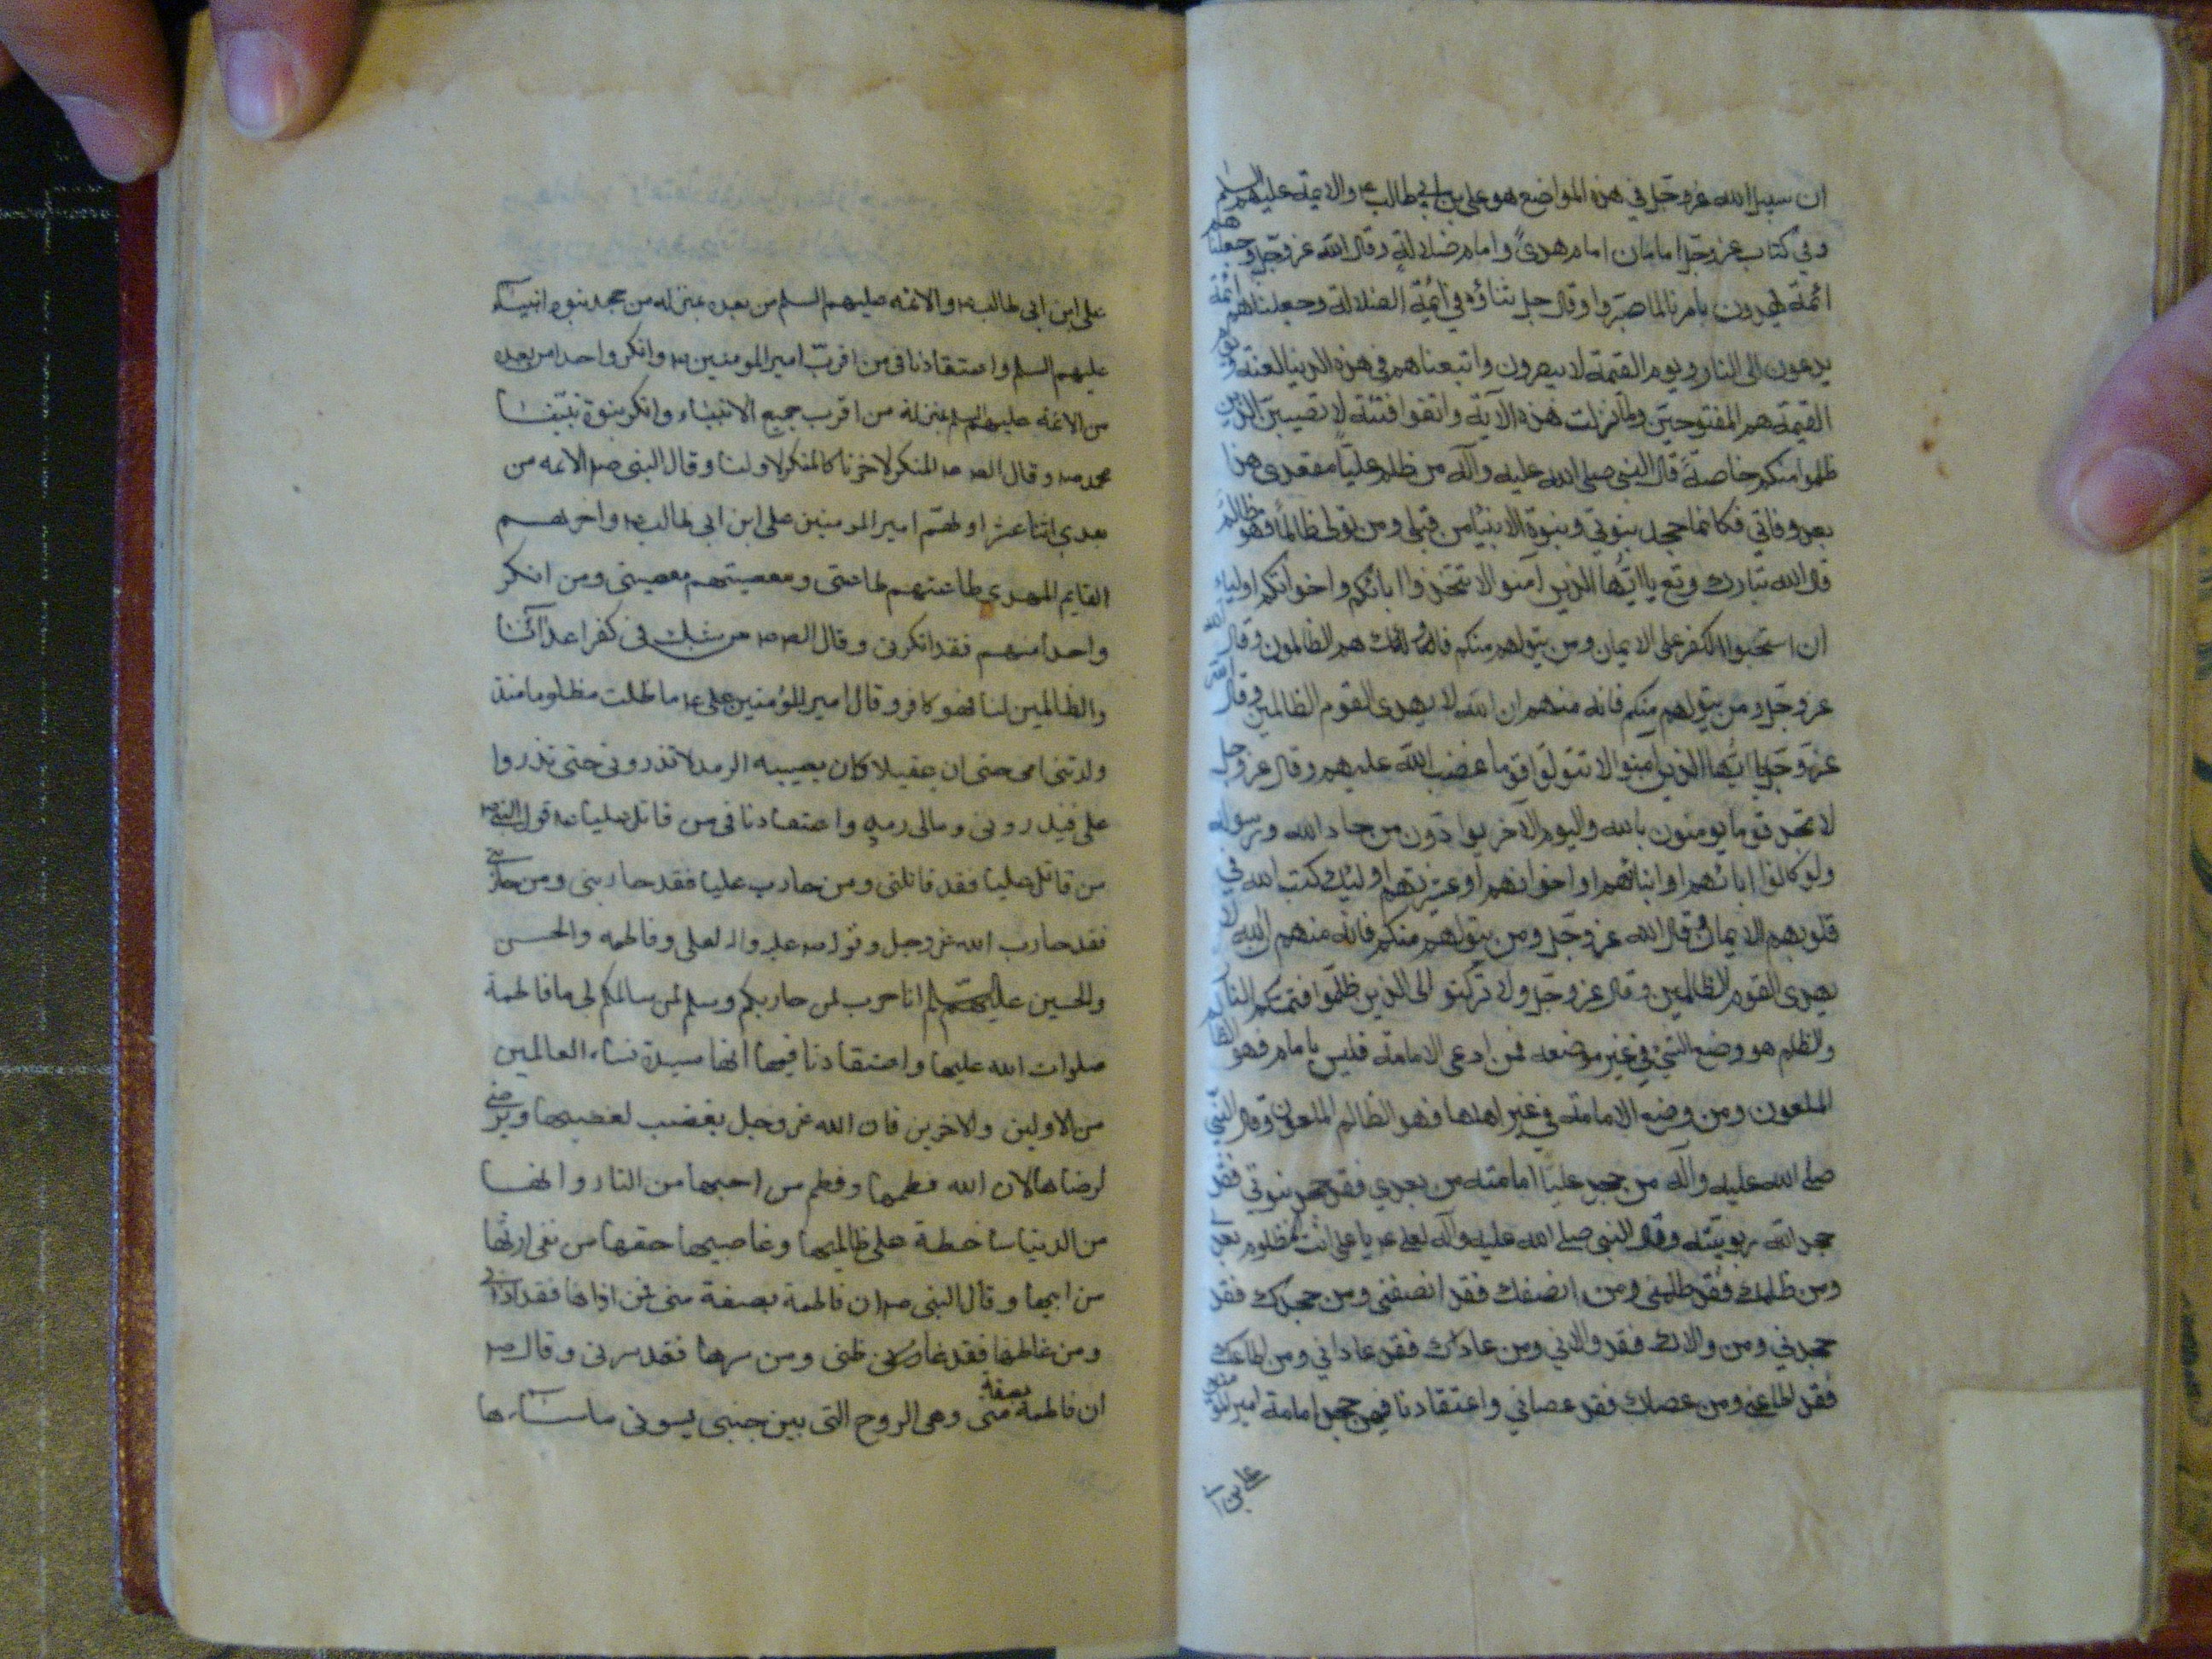 ان سبيل الله عزوجل في هذه المواضع هو علي بن ابي طالب ع والايمة عليهم السلم
وفي كتاب عزوجل امامان امام هدىً وامام ضلالةٍ وقال الله عزوجل وجعلناهم
ائمة يهدون بامرنا لما صبروا وقال جل ثناؤه في ائمة الضلالة وجعلناهم ائمة
يدعون الى النار ويوم القيمة لا ينصرون واتبعناهم في هذه الدنيا لعنة ويوم
القيمة هم المقبوحين ولما نزلت هذه الآية واتقوا فتنة لا تصيبن الذين
ظلموا منكم خاصة قال النبي صلى الله عليه وآله من ظلم علياً مقعدي هذا
بعد وفاتي فكانما جحد بنبوتي وبنبوة الانبيا من قبلي ومن تولى ظالماً فهو ظالم
قال الله تبارك وتع يا ايها الذين آمنوا لا تتخذوا ابائكم واخوانكم اولياء
ان استحبوا الكفر على الايمان ومن يتولهم منكم فاولئك هم الظالمون وقال الله
عزوجل ومن يتولهم منكم فانه منهم ان الله لا يهدى القوم الظالمين وقال الله
عزوجل يا ايها الذين امنوا لا تتولوا قوما غضب الله عليهم وقال عزوجل
لا تجد قوما يومنون بالله واليوم الآخر يوادون من حاد الله ورسوله
ولو كانوا ابائهم او ابنائهم او اخوانهم او عشيرتهم اوليك كتب الله في
قلوبهم الايمان وقال الله عزوجل ومن يتولهم منكم فانه منهم ان الله لا
يهدى القوم الظالمين وقال عزوجل ولا تركنو الى الذين ظلموا فتمسكم النار
والظلم هو وضع الشئ في غير موضعه فمن ادعى الامامة فليس بامام فهو الظالم
الملعون ومن وضع الامامة في غير اهلها فهو الظالم الملعون وقال النبي
صلى الله عليه وآله من جحد علياً امامته من بعدي فقد جحد نبوتي ومن جحد نبوتي فقد
جحد الله ربوبيته وقال النبي صلى الله عليه وآله لعلي ع يا علي انت المظلوم بعدي
ومن ظلمك فقد ظلمني ومن انصفك فقد انصفني ومن جحدك فقد
جحدني ومن والاك فقد والاني ومن عاداك فقد عاداني ومن اطاعك
فقد اطاعني ومن عصاك فقد عصاني واعتقادنا فيمن جحد امامة امير المؤمنين
علي بن ا
على ابن ابى طالب ع والائمه عليهم السلم من بعده بمنزله من جحد نبوة انبياء
عليهم السلم واعتقادنا فى من اقرب امير المومنين ع وانكر واحدا من بعده
من الائمة عليهم السلم بمنزلة من اقرب جميع الانبياء وانكر بنبوة نبينا
محمد ص وقال الص ع المنكر لاخرنا كالمنكر لاولنا وقال النبى ص الائمه من
بعدي اثنا عشر اولهم امير المومنين على ابن ابى طالب ع واخرهم
القايم المهدى طاعتهم طاعتى ومعصيتهم معصيتى ومن انكر
واحدا منهم فقد انكرنى وقال الص ع من شك فى كفر اعدائنا
والظالمين لنا فهو كافر وقال امير المؤمنين على ع ما ظلت مظلوما منذ
ولدتنى امى حتى ان عقيلا كان يصيبه الرمد لا تذرونى حتى تذروا
على فيذرونى ومالى رمد واعتقادنا فى من قاتل عليا ع قول النبى ص
من قاتل عليا فقد قاتلنى ومن حارب عليا فقد حاربنى ومن حاربنى
فقد حارب الله عزوجل وقوله ص عليه واله لعلى وفاطمه والحسن
والحسين عليهم السلم انا حرب لمن حاربكم وسلم لمن سالمكم اما فاطمة
صلوات الله عليها واعتقادنا فيها انها سيدة نساء العالمين
من الاولين والاخرين فان الله عزوجل يغضب لغضبها ويرضى
لرضاها لان الله فطمها وفطم من احبها من النار وانها
من الدنيا ساخطة على ظالميها وغاصبيها حقها من نفى ارثها
من ابيها وقال النبى ص ان فاطمة بضعة منى فمن اذاها فقد اذانى
ومن غاظها فقد غاظنى ومن سرها فقد سرنى وقال ص
ان فاطمة بضعة منى وهى الروح التى بين جنبى يسونى ما ساءها